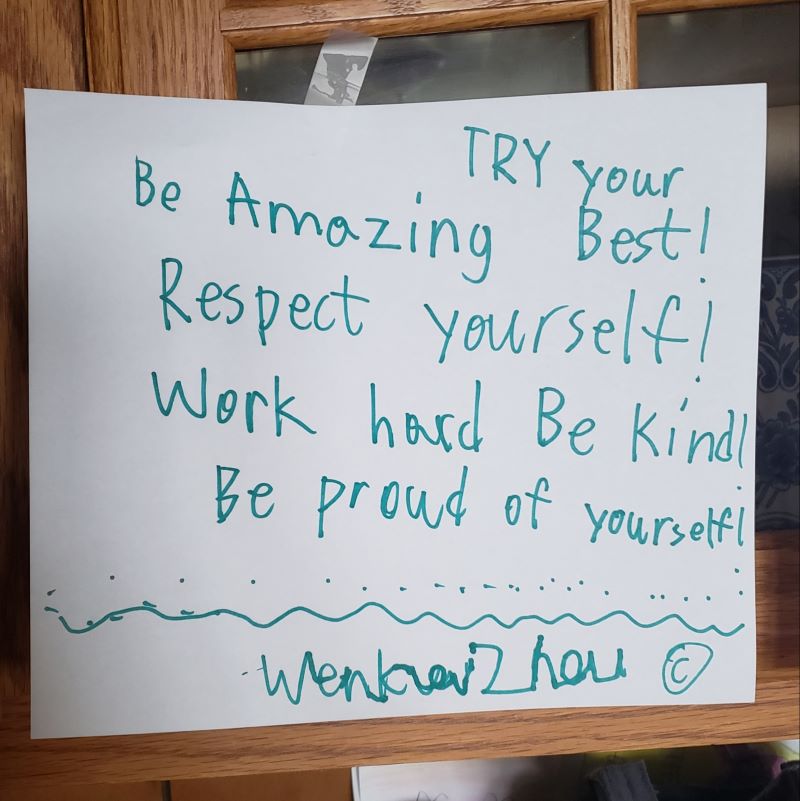 TRY your
Be Amazing Best!
Respect yourself!
Work hard Be Kind!
Be proud of yourself!
©